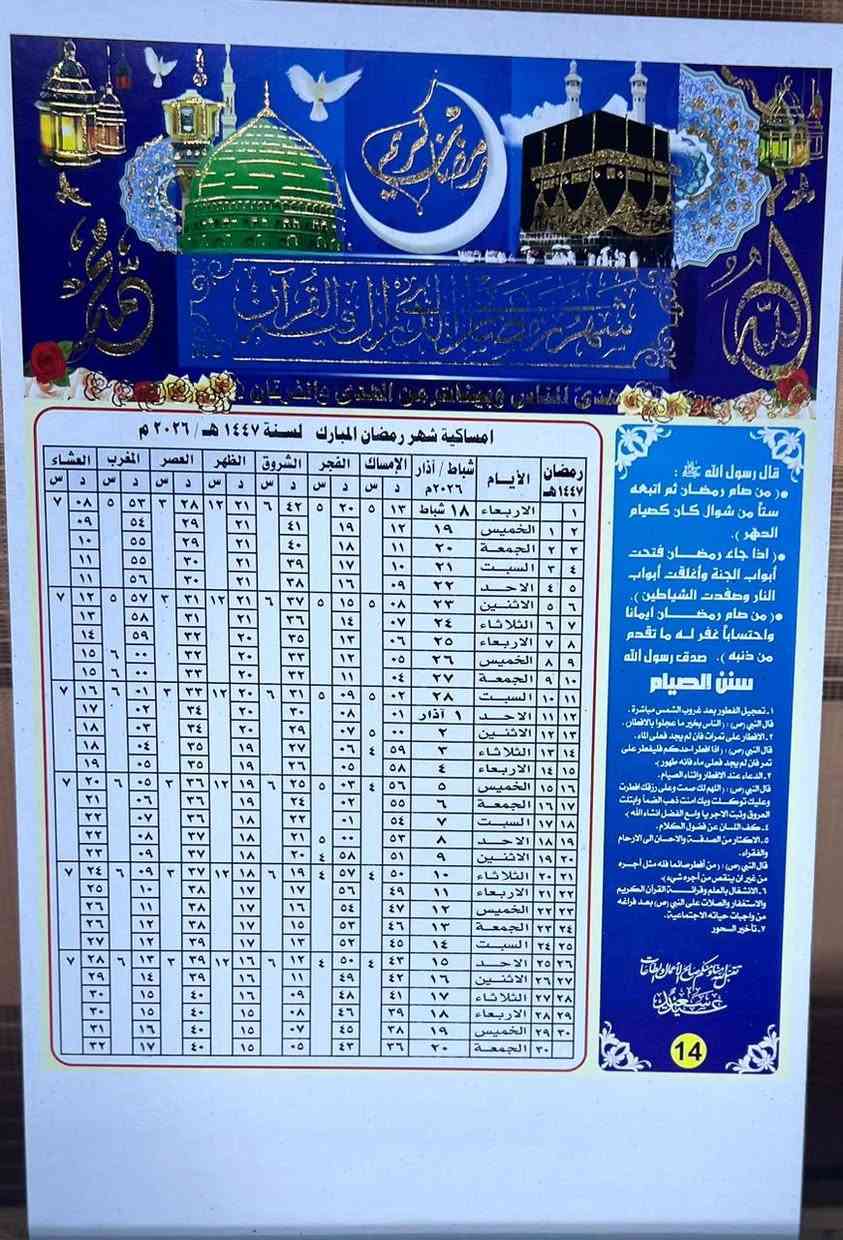 رمضان كريم
الله
محمد
شهر رمضان الذي أنزل فيه القرآن
هدى للناس وبينات من الهدى والفرقان
امساكية شهر رمضان المبارك لسنة ١٤٤٧ هـ / ٢٠٢٦ م
رمضان ١٤٤٧هـ الأيـام شباط / آذار ٢٠٢٦م الإمساك الفجر الشروق الظهر العصر المغرب العشاء
د س د س د س د س د س د س د س
١ الاربعاء ١٨ شباط ١٣ ٥ ٢٠ ٥ ٤٢ ٦ ٢١ ١٢ ٢٨ ٣ ٥٣ ٥ ٠٨ ٧
٢ ١ الخميس ١٩ ١٢ ١٩ ٤١ ٢١ ٢٩ ٥٤ ٠٩
٣ ٢ الجمعة ٢٠ ١١ ١٨ ٤٠ ٢١ ٢٩ ٥٥ ١٠
٤ ٣ السبت ٢١ ١٠ ١٧ ٣٩ ٢١ ٣٠ ٥٥ ١١
٥ ٤ الاحد ٢٢ ٠٩ ١٦ ٣٨ ٢١ ٣٠ ٥٦ ١١
٦ ٥ الاثنين ٢٣ ٠٨ ٥ ١٥ ٥ ٣٧ ٦ ٢١ ١٢ ٣١ ٣ ٥٧ ٥ ١٢ ٧
٧ ٦ الثلاثاء ٢٤ ٠٧ ١٤ ٣٦ ٢١ ٣١ ٥٨ ١٣
٨ ٧ الاربعاء ٢٥ ٠٦ ١٣ ٣٥ ٢٠ ٣٢ ٥٩ ١٤
٩ ٨ الخميس ٢٦ ٠٥ ١٢ ٣٣ ٢٠ ٣٢ ٠٠ ٦ ١٥
١٠ ٩ الجمعة ٢٧ ٠٤ ١١ ٣٢ ٢٠ ٣٣ ٠٠ ٦ ١٥
١١ ١٠ السبت ٢٨ ٠٢ ٥ ٠٩ ٥ ٣١ ٦ ٢٠ ١٢ ٣٣ ٣ ٠١ ٦ ١٦ ٧
١٢ ١١ الاحد ١ آذار ٠١ ٠٨ ٣٠ ٢٠ ٣٤ ٠٢ ١٧
١٣ ١٢ الاثنين ٢ ٠٠ ٥ ٠٧ ٢٩ ٢٠ ٣٤ ٠٣ ١٨
١٤ ١٣ الثلاثاء ٣ ٥٩ ٤ ٠٦ ٢٧ ١٩ ٣٥ ٠٤ ١٨
١٥ ١٤ الاربعاء ٤ ٥٨ ٠٥ ٢٦ ١٩ ٣٥ ٠٥ ١٩
١٦ ١٥ الخميس ٥ ٥٦ ٤ ٠٣ ٥ ٢٥ ٦ ١٩ ١٢ ٣٦ ٣ ٠٥ ٦ ٢٠ ٧
١٧ ١٦ الجمعة ٦ ٥٥ ٠٢ ٢٤ ١٩ ٣٦ ٠٦ ٢١
١٨ ١٧ السبت ٧ ٥٤ ٠١ ٢٢ ١٨ ٣٦ ٠٧ ٢٢
١٩ ١٨ الاحد ٨ ٥٣ ٠٠ ٥ ٢١ ١٨ ٣٧ ٠٨ ٢٢
٢٠ ١٩ الاثنين ٩ ٥١ ٥٨ ٤ ٢٠ ١٨ ٣٧ ٠٩ ٢٣
٢١ ٢٠ الثلاثاء ١٠ ٥٠ ٤ ٥٧ ٤ ١٩ ٦ ١٨ ١٢ ٣٧ ٣ ٠٩ ٦ ٢٤ ٧
٢٢ ٢١ الاربعاء ١١ ٤٩ ٥٦ ١٧ ١٧ ٣٨ ١٠ ٢٥
٢٣ ٢٢ الخميس ١٢ ٤٧ ٥٤ ١٦ ١٧ ٣٨ ١١ ٢٦
٢٤ ٢٣ الجمعة ١٣ ٤٦ ٥٣ ١٥ ١٧ ٣٨ ١٢ ٢٦
٢٥ ٢٤ السبت ١٤ ٤٥ ٥٢ ١٣ ١٧ ٣٩ ١٢ ٢٧
٢٦ ٢٥ الاحد ١٥ ٤٣ ٤ ٥٠ ٤ ١٢ ٦ ١٦ ١٢ ٣٩ ٣ ١٣ ٦ ٢٨ ٧
٢٧ ٢٦ الاثنين ١٦ ٤٢ ٤٩ ١١ ١٦ ٣٩ ١٤ ٢٩
٢٨ ٢٧ الثلاثاء ١٧ ٤١ ٤٨ ٠٩ ١٦ ٤٠ ١٥ ٣٠
٢٩ ٢٨ الاربعاء ١٨ ٣٩ ٤٦ ٠٨ ١٥ ٤٠ ١٥ ٣٠
٣٠ ٢٩ الخميس ١٩ ٣٨ ٤٥ ٠٧ ١٥ ٤٠ ١٦ ٣١
٣٠ الجمعة ٢٠ ٣٦ ٤٣ ٠٥ ١٥ ٤٠ ١٧ ٣٢
قال رسول الله ﷺ :
( من صام رمضان ثم اتبعه
ستاً من شوال كان كصيام
الدهر ).
( اذا جاء رمضان فتحت
أبواب الجنة وأغلقت أبواب
النار وصفدت الشياطين ).
( من صام رمضان ايمانا
واحتساباً غفر له ما تقدم
من ذنبه ). صدق رسول الله
سنن الصيام
١. تعجيل الفطور بعد غروب الشمس مباشرة .
قال النبي (ص) : (الناس بخير ما عجلوا بالافطار).
٢. الافطار على تمرات فان لم يجد فعلى الماء.
قال النبي (ص) : (اذا افطر احدكم فليفطر على
تمر فان لم يجد فعلى ماء فانه طهور).
٣. الدعاء عند الافطار واثناء الصيام .
قال النبي (ص) : (اللهم لك صمت وعلى رزقك افطرت
وعليك توكلت وبك امنت ذهب الضمأ وابتلت
العروق وثبت الاجر يا واسع الفضل انشاء الله ).
٤. كف اللسان عن فضول الكلام.
٥. الاكثار من الصدقة والاحسان الى الارحام
والفقراء.
قال النبي (ص) : ( من أفطر صائما فله مثل أجره
من غير ان ينقص من أجره شيء).
٦. الانشغال بالعلم وقرائة القرآن الكريم
والاستغفار والصلات على النبي (ص) بعد فراغه
من واجبات حياته الاجتماعية.
٧. تأخير السحور
تقبل الله منا ومنكم صالح الأعمال والطاعات
عيد سعيد
14